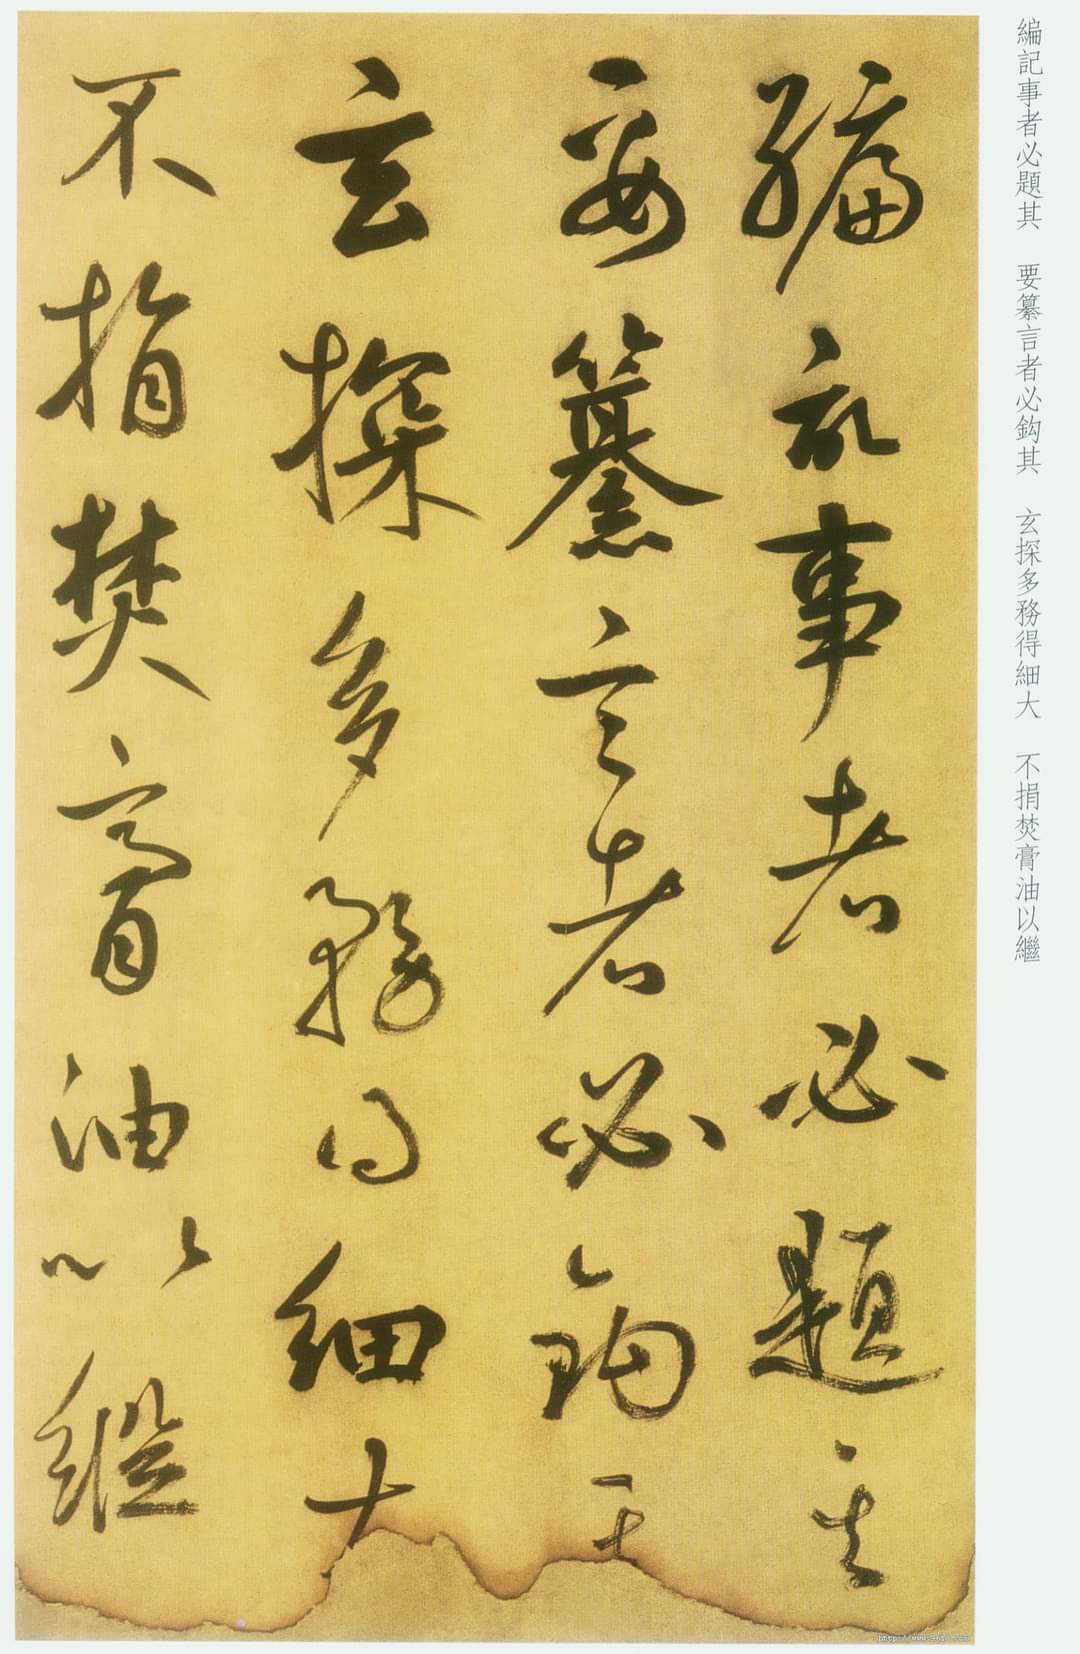 編記事者必題其　要纂言者必鈎其　玄探多務得細大　不捐焚膏油以繼
編記事者必題其
要纂言者必鈎其
玄探多務得細大
不捐焚膏油以繼